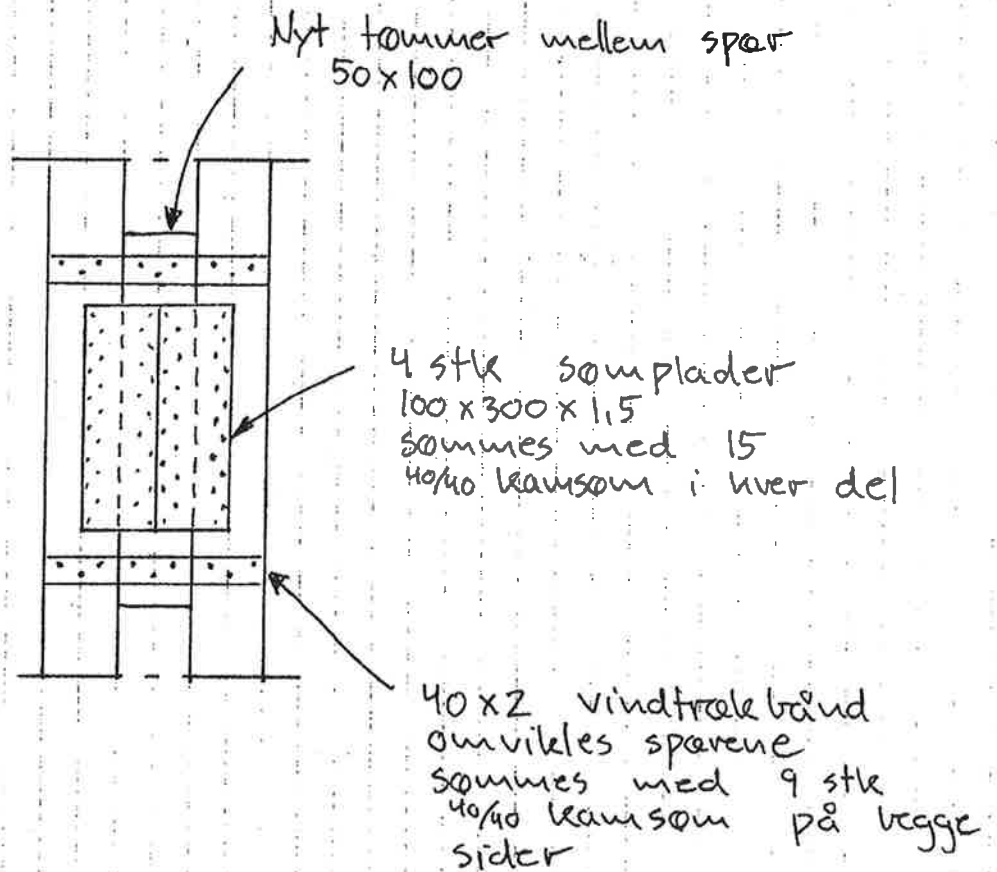 Nyt tømmer mellem spær
50 x 100
4 stk sømplader
100 x 300 x 1,5
sømmes med 15
40/40 kamsøm i hver del
40 x 2 vindtrækbånd
omvikles spærene
sømmes med 9 stk
40/40 kamsøm på begge
sider